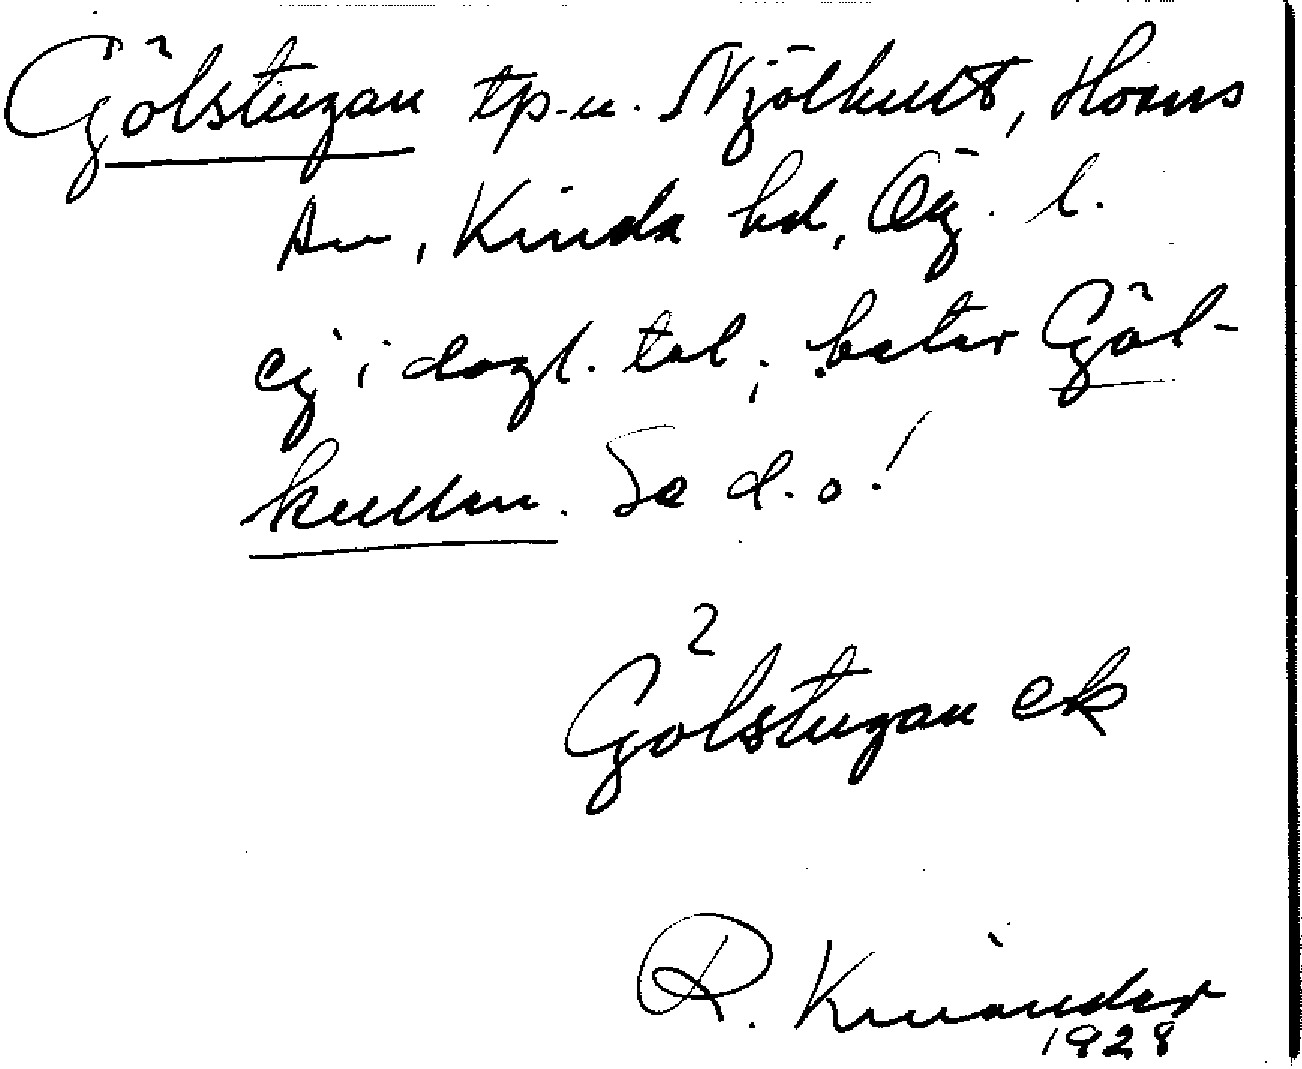 Gölstugan tp.u. Njölhult, Horns
sn, Kinda hd, Ög. l.
ej i dagl. tal; heter Göl-
kullen. Se d.o!
2
Gölstugan ek
R. Kinander
1928